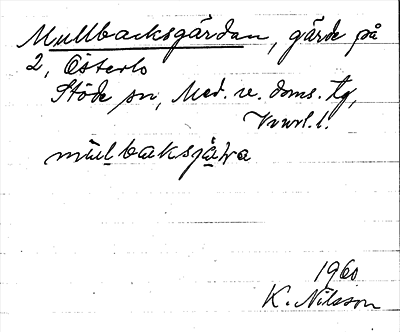 Mullbacksgärdan, gärde på
2, Österlo
Stöde sn, Med. v. doms. tg,
Vnrl. l.
mulbaksjäɽa
1960
K. Nilsson